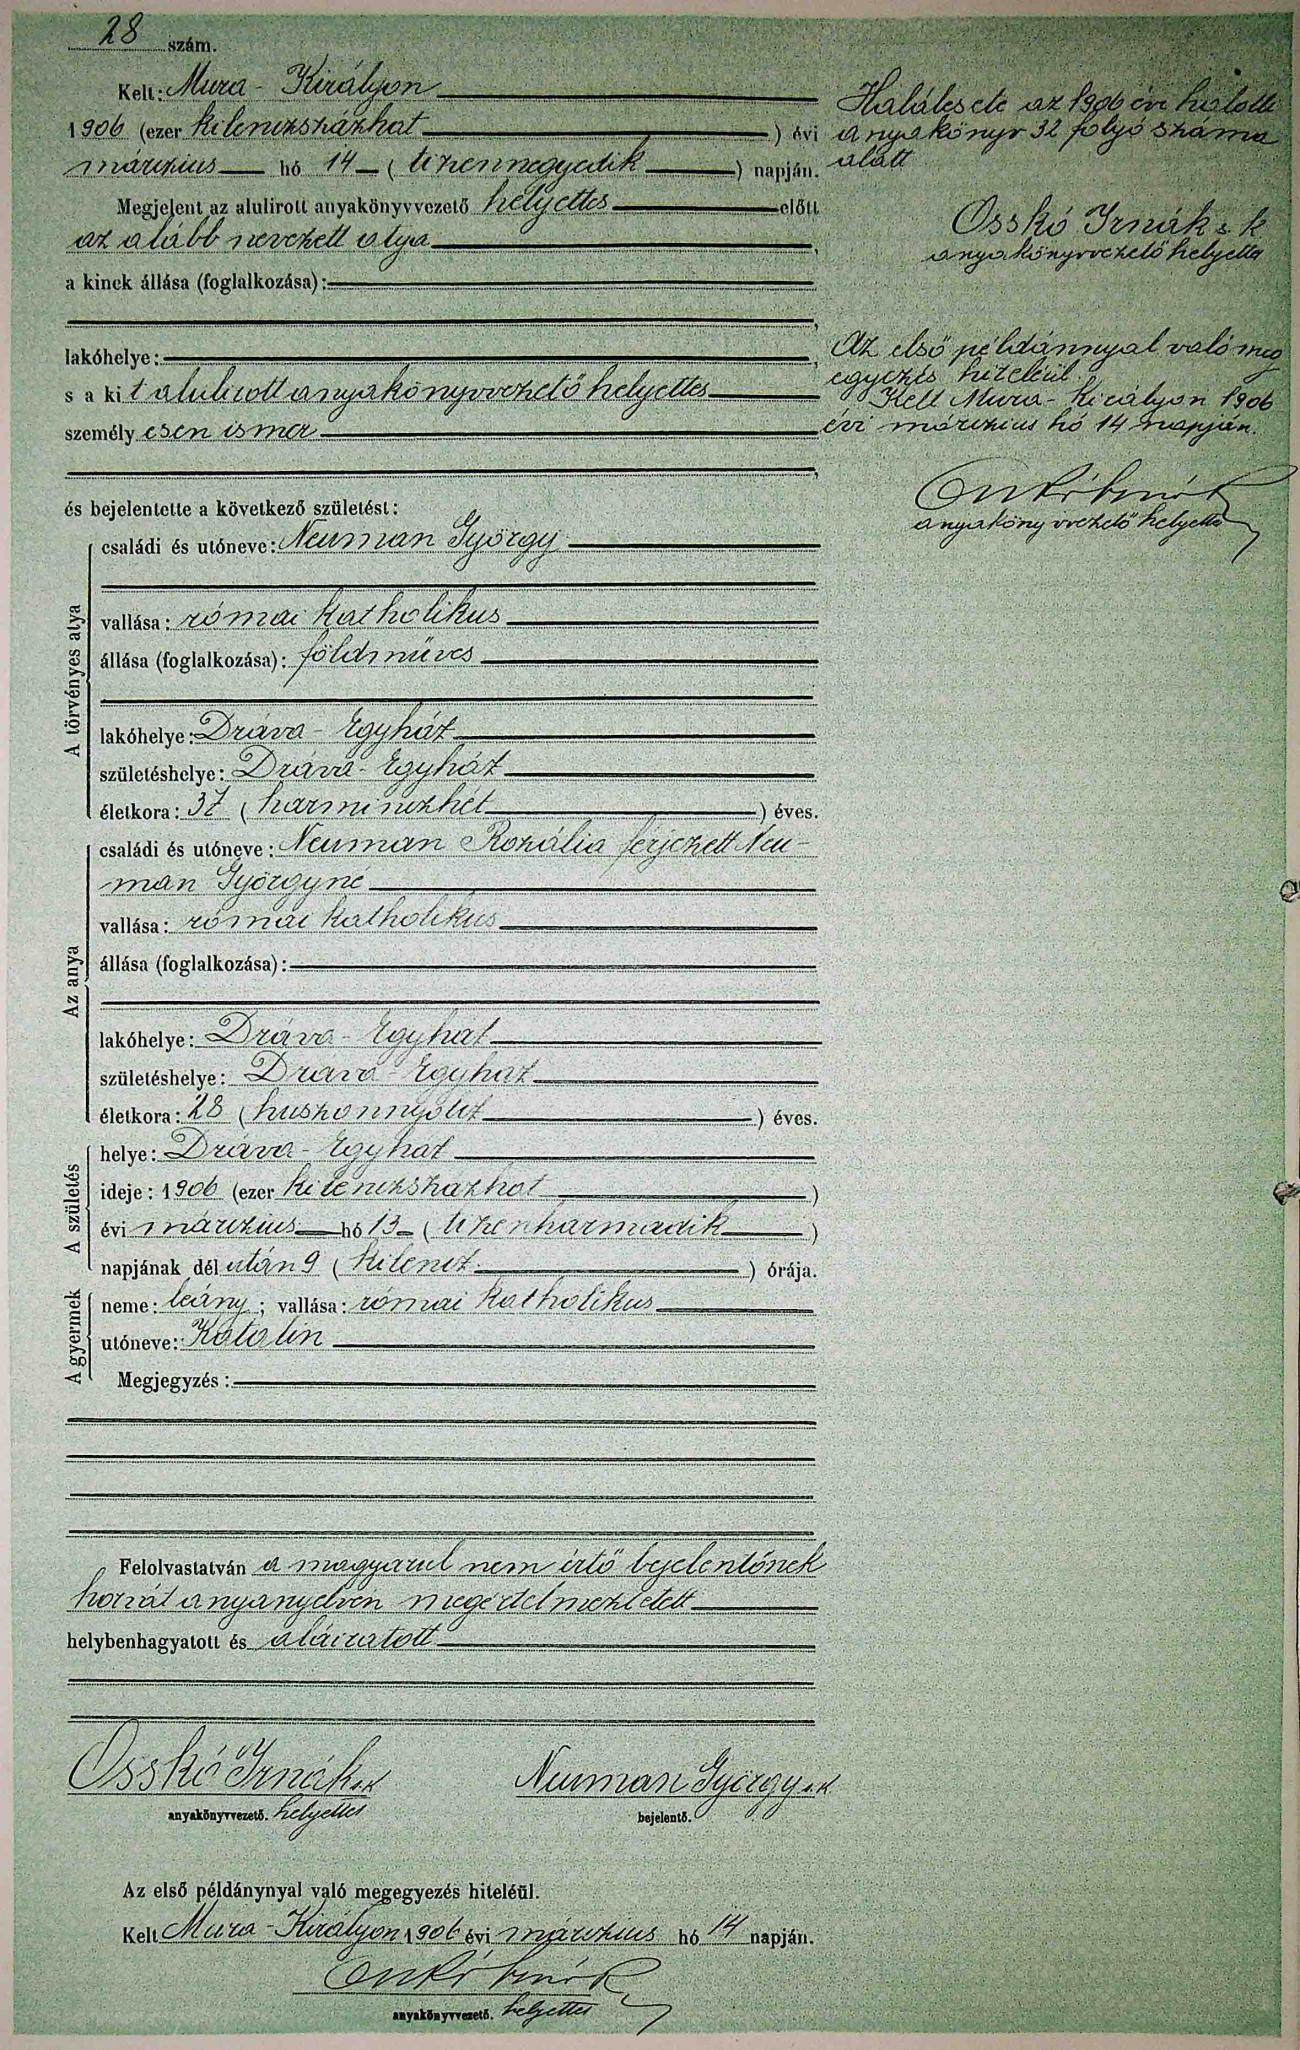 28 szám.
Kelt: Mura-Királyon
1906 (ezer kilenczszázhat) évi
márczius hó 14 (tizennegyedik) napján.
Megjelent az alulirott anyakönyvvezető helyettes előtt
az alább nevezett atya,
a kinek állása (foglalkozása):
lakóhelye:
s a kit alulirott anyakönyvvezető helyettes
személyesen ismer
és bejelentette a következő születést:
A törvényes atya
családi és utóneve: Neuman György
vallása: római katholikus
állása (foglalkozása): földmüves
lakóhelye: Dráva-Egyház
születéshelye: Dráva-Egyház
életkora: 37 (harminczhét) éves.
Az anya
családi és utóneve: Neuman Rozália férjezett Neu-
man Györgyné
vallása: római katholikus
állása (foglalkozása):
lakóhelye: Dráva-Egyház
születéshelye: Dráva-Egyház
életkora: 28 (huszonnyolcz) éves.
A születés
helye: Dráva-Egyház
ideje: 1906 (ezer kilenczszázhat)
évi márczius hó 13 (tizenharmadik)
napjának dél után 9 (kilencz) órája.
A gyermek
neme: leány; vallása: római katholikus
utóneve: Katalin
Megjegyzés:
Felolvastatván a magyarul nem értő bejelentőnek
horvát anyanyelvén megértelmeztetett
helybenhagyatott és aláiratott
Osskó Irnák s.k.
anyakönyvvezető. helyettes
Neuman György s.k.
bejelentő.
Az első példánynyal való megegyezés hiteléül.
Kelt Mura-Királyon 1906 évi márczius hó 14 napján.
Osskó Irnák
anyakönyvvezető. helyettes
Halálesete az 1906 évi halotti
anyakönyv 32 folyó száma
alatt
Osskó Irnák s. k
anyakönyvvezető helyettes
Az első példánnyal való meg
egyezés hiteléül.
Kelt Mura-Királyon 1906
évi márczius hó 14 napján.
Osskó Irnák
anyakönyvvezető helyettes